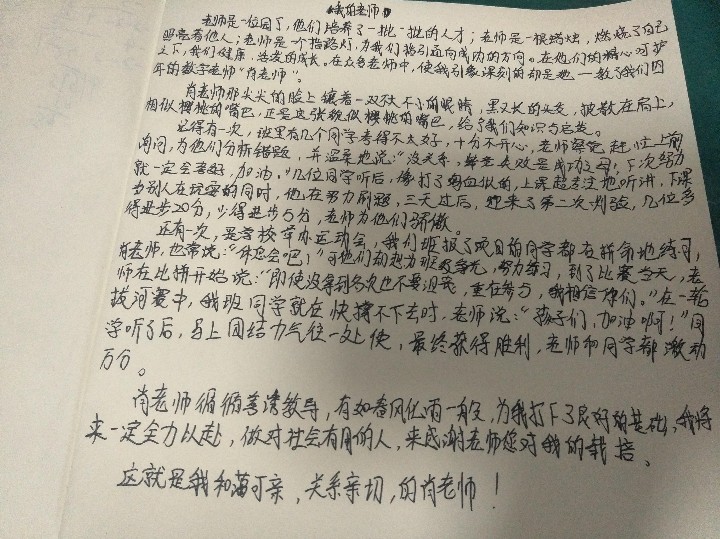 《我的老师》
老师是一位园丁，他们培养了一批一批的人才；老师是一根蜡烛，燃烧了自己
照亮着他人；老师是一个指路灯，为我们指引迈向成功的方向。在他们的精心呵护
之下，我们健康、茁壮的成长。在众多老师中，使我印象深刻的却是她——教了我们四
年的数学老师“肖老师”。
肖老师那尖尖的脸上镶着一双不大不小的眼睛，黑又长的头发，披散在肩上，
相似樱桃的嘴巴，正是这张貌似樱桃的嘴巴，给了我们知识与启发。
记得有一次，班里有几个同学考得不太好，十分不开心，老师察觉，赶忙上前
询问，为他们分析错题，并温柔地说：“没关系，失败是成功之母，下次努力
就一定会考好，加油。”几位同学听后，像打了鸡血似的，上课超专注地听讲，下课
当别人在玩耍的同时，他在努力刷题，三天过后，迎来了第二次测验，几位多
得进步20分，少得进步5分，老师为他们骄傲。
还有一次，是学校举办运动会，我们班报了项目的同学都在拼命地练习，
肖老师，也常说：“休息会吧！”可他们却想为班级争光，努力练习，到了比赛当天，老
师在比拼开始说：“即使没拿到名次也不要沮丧，重在参与，我相信你们。”在一轮
拔河赛中，我班同学就在快撑不下去时，老师说：“孩子们，加油啊！”同
学听了后，马上团结力气往一处使，最终获得胜利，老师和同学都激动
万分。
肖老师循循善诱教导，有如春风化雨一般，为我打下了良好的基础，我将
来一定全力以赴，做对社会有用的人，来感谢老师您对我的栽培。
这就是我和蔼可亲，关系亲切，的肖老师！